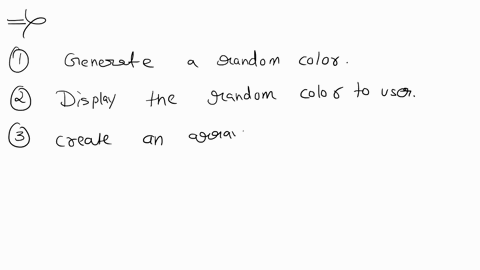 ① Generate a random color.
② Display the random color to user.
③ create an array